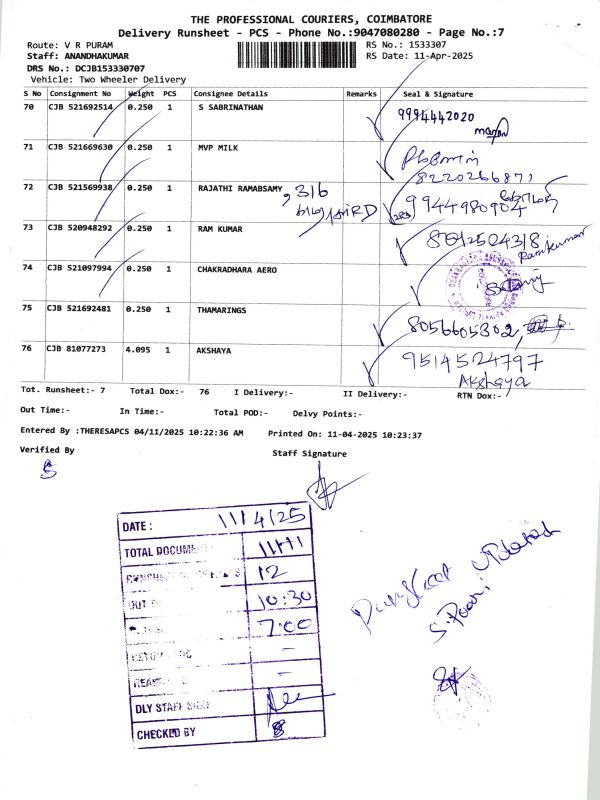 THE PROFESSIONAL COURIERS, COIMBATORE
Delivery Runsheet - PCS - Phone No.:9047080280 - Page No.:7
Route: V R PURAM
RS No.: 1533307
Staff: ANANDHAKUMAR
RS Date: 11-Apr-2025
DRS No.: DCJB153330707
Vehicle: Two Wheeler Delivery
S No Consignment No Weight PCS Consignee Details Remarks Seal & Signature
70 CJB 521692514 0.250 1 S SABRINATHAN 9994442020
71 CJB 521669630 0.250 1 MVP MILK
8220266871
72 CJB 521569938 0.250 1 RAJATHI RAMABSAMY 316 9944980904
73 CJB 520948292 0.250 1 RAM KUMAR
Ramkumar
74 CJB 521097994 0.250 1 CHAKRADHARA AERO
75 CJB 521692481 0.250 1 THAMARINGS 8056605302,
76 CJB 81077273 4.095 1 AKSHAYA 9514524797
Akshaya
Tot. Runsheet:- 7 Total Dox:- 76 I Delivery:- II Delivery:- RTN Dox:-
Out Time:- In Time:- Total POD:- Delvy Points:-
Entered By :THERESAPCS 04/11/2025 10:22:36 AM Printed On: 11-04-2025 10:23:37
Verified By Staff Signature
DATE : 11/4/25
TOTAL
12
OUT 10:30
7:00
DLY STAFF
CHECKED BY